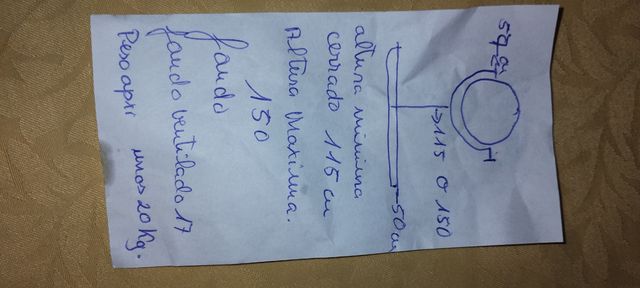 115 o 150
50 cm
altura minima
cerrado 115 cm
Altura Maxima.
150
fondo
fondo ventilado 17
Peso apri unos 20 Kg.